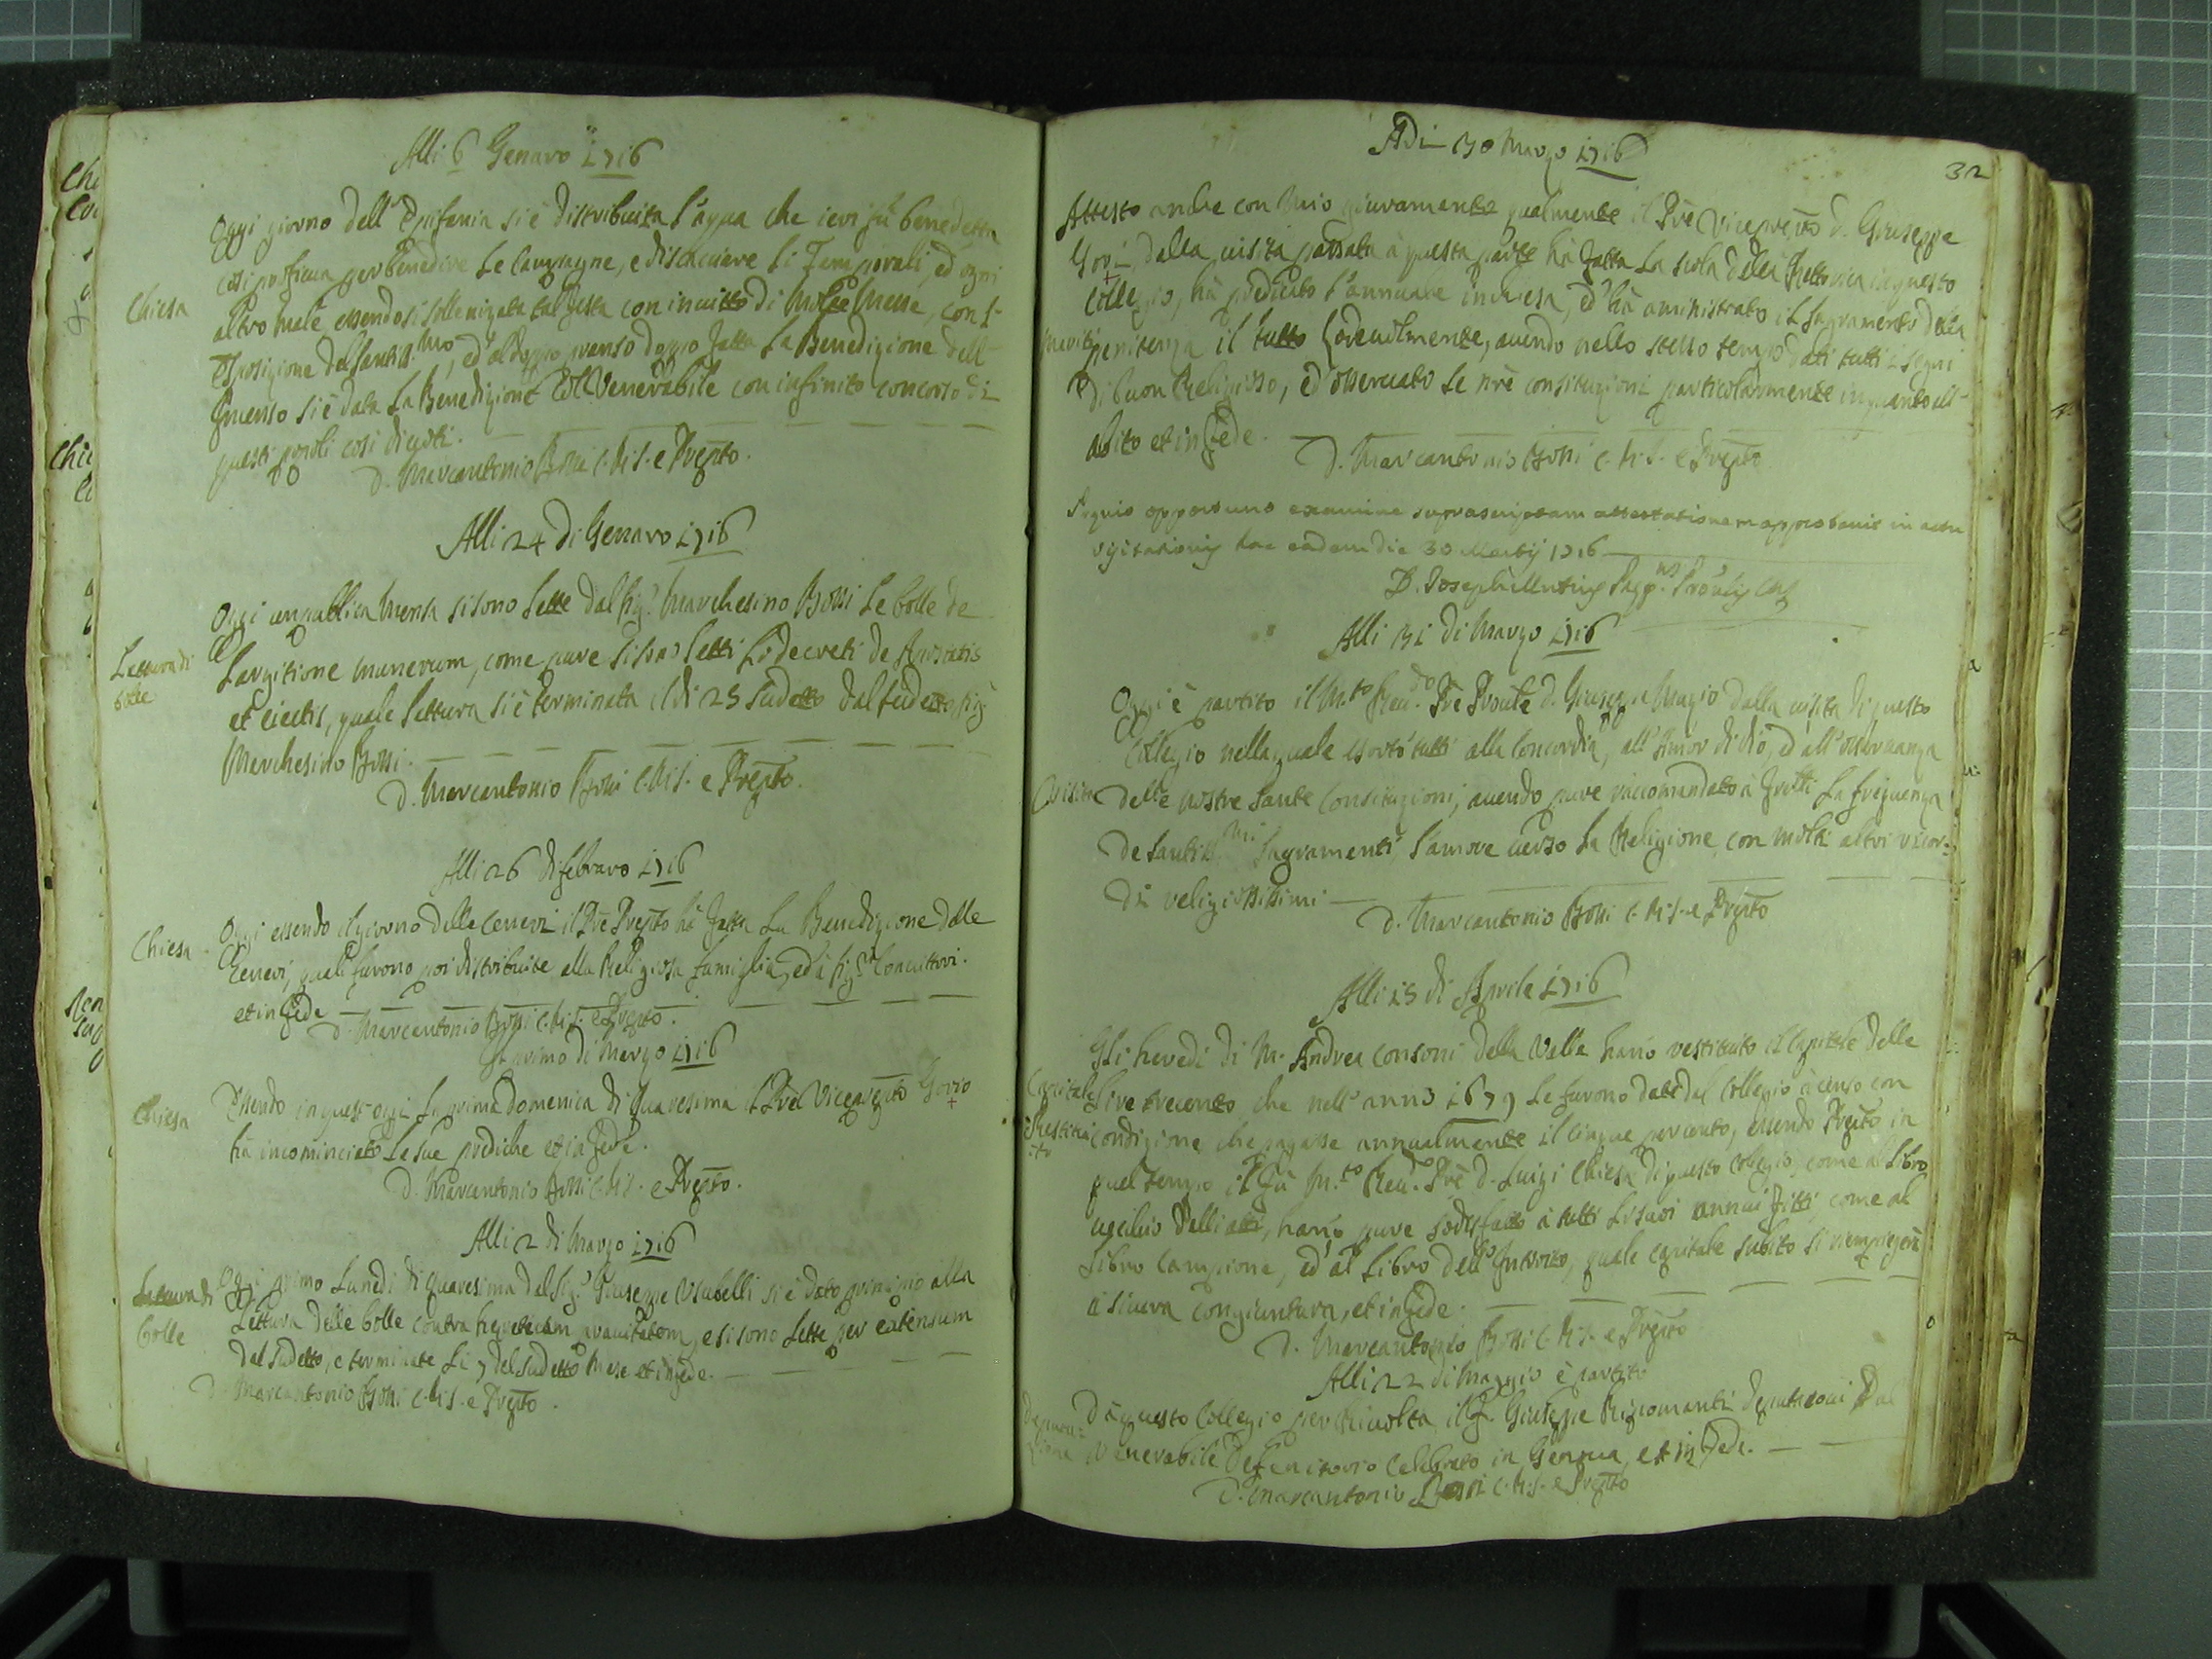 Alli 6 Genaro 1716
Oggi giorno dell' Epifania si è distribuita l'aqua che ieri fù benedetta
così proficua per benedire le Campagne, e discaciare li Temporali, ed ogni
Chiesa
altro male essendosi sollenizata tal festa con inuitto di molte Messe, con l'-
Esposizione del Santiss.mo, ed al doppo pranso doppo fatta la Benedizione dell'
Incenso si è data la Benedizione col Venerabile con infinito concorso di
questi popoli così diuoti.
D. Marcantonio Rossi C.R.S. e Prepto.
Alli 24 di Genaro 1716
Oggi in publica Mensa si sono lette dal Sig.r Marchesino Rossi le bolle de
Lettura di
bolle
Largitione munerum, come pure si sono letti li decreti de Apostatis
et eiectis, quale lettura si è terminata il dì 25 sudetto dal sudetto Sig.r
Marchesino Rossi.
D. Marcantonio Rossi C.R.S. e Prepto.
Alli 26 di febraro 1716
Chiesa
Oggi essendo il giorno delle Ceneri il Pre Prepto hà fatta la Benedizione delle
Ceneri, quali furono poi distribuite alla Religiosa famiglia, ed à Sig.ri Conuittori.
et in fede
D. Marcantonio Rossi C.R.S. e Prepto.
Il primo di Marzo 1716
Chiesa
Essendo in quest'oggi la prima domenica di Quaresima il Pre Viceprepto Gorio
hà incominciato le sue prediche et in fede.
D. Marcantonio Rossi C.R.S. e Prepto.
Alli 2 di Marzo 1716
Lettura di
bolle
Oggi primo Lunedì di Quaresima dal Sig.r Giuseppe Usubelli si è dato principio alla
Lettura delle bolle contra hereticam prauitatem, e si sono lette per extensum
dal sudetto, e terminate li 7 del sudetto Mese et in fede.
D. Marcantonio Rossi C.R.S. e Prepto.
32
Adì 30 Marzo 1716
Attesto anche con mio giuramento qualmente il Pre Viceprepto d. Giuseppe
Gorio dalla uisita passata à questa parte hà fatta la scola della Rettorica in questo
Collegio, hà predicato l'annuale in chiesa, ed hà aministrato il Sagramento della
penitenza il tutto lodeuolmente, auendo nello stesso tempo dati tutti i segni
di buon Religioso, ed osseruato le nrè constituzioni particolarmente in quanto all'
abito et in fede.
D. Marcantonio Rossi C.R.S. e Prepto
opportuno examine suprascriptam attestationem approbauit in actu
visitationis hac eadem die 30 Martij 1716
Alli 31 di Marzo 1716
Oggi è partito il M.to Reu.do Pre Proule d. Giuseppe Mugio dalla uisita di questo
Collegio nella quale esortò tutti alla Concordia, all' Amor di dio, ed all' osseruanza
Visita
delle nostre Sante Constituzioni, auendo pure raccomandato à frutti la frequenza
de Santiss.mi Sagramenti, l'amore uerso la Religione con molti altri ricor-
di religiosissimi
D. Marcantonio Rossi C.R.S. e Prepto
Alli 15 di Aprile 1716
Gli heredi di M. Andrea Consoni della Valle hano restituito il Capitale delle
Capitale
Restitui
to
Lire trecento che nell' anno 1679 le furono date dal Collegio à censo con
condizione che pagasse annualmente il cinque per cento, essendo Prepto in
quel tempo il fù M.to Reu.do Pre d. Luigi Chiesa di questo Collegio, come al libro
uechio delli atti, hano pure sodisfatto à tutti li suoi annui fitti, come al
Libro Campione, ed al Libro dell' Introito, quale capitale subito si riempiegerà
à sicura congiuntura, et in fede.
D. Marcantonio Rossi C.R.S. e Prepto
Alli 22 di Maggio è partito
da questo Collegio il F. Giuseppe Ripomanti dal
Venerabile Definitorio celebrato in Genoua, et in fede.
D. Marcantonio Rossi C.R.S. e Prepto